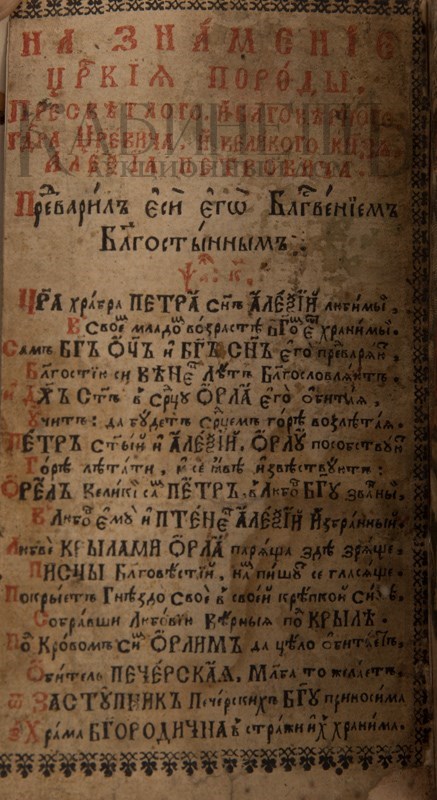 НА ЗНАМЕНІЕ
ЦРКІѦ ПОРОДЫ,
ПРЕСВѢТЛОГО, И БЛГОЧѢРНОГО
ГДРА ЦРЕВИЧА, И ВЕЛИКОГО КНЗѦ,
АЛЕѮІА ПЕТРОВИЧА.
Превари́лъ єсѝ єго̀ Блгⷭ҇ве́нїемъ
Блгосты́ннымъ:
Ѱа: к҃.
ЦРѦ хра́бра ПЕТРА̀ Сн҃ъ АЛЕѮІЙ люби́мый,
В Своеⷨ младоⷨ во́зрастѣ БГоⷨ єⷭ҇ храни́мый.
Самъ БГЪ ОЦЪ и БГЪ СНЪ єго̀
Бла́гости си ВѢНЕЦ Благословлѧ́ѧ
и ДХЪ Стъ в Срцу ОРЛА̀ єго̀
Учитъ: да бу́детъ Срцемъ го́рѣ возлѣта́ѧ.
ПЕТРЪ Стый и АЛЕѮІЙ, ОРЛУ пособствуⷮ
Го́рѣ лѣта́ти, и се тебѣ извѣ́ствуютъ:
ОРЕЛЪ Вели́кі саⷨ ПЕТРЪ, в Любоⷡ БГУ зва́ный,
В Любоⷡ єму̀ и ПТЕНЕЦ АЛЕѮІЙ Избра́нный,
Любве КРЫЛАМИ ОРЛА̀ парѧ́ща здѣ зрѧ́ще,
ПИСЦЫ Благовѣстіи, на пишуⷮ се гласѧ́ще,
Покрыетъ Гнѣздо свое в свое́й крѣпкой си́лѣ,
Собра́вши Любо́вїю Вѣрныѧ поⷣ КРЫЛѢ.
Поⷣ Кровомъ Сиⷨ ОРЛИМЪ да цѣло
Оби́тель ПЕЧЕРСКАѦ, Мл҃ба то жела́етъ,
ѿ ЗАСТУПНИКЪ Пече́рскихъ БГУ приноси́ма
в Хра́ма БГОРОДИЧНА в стражи их храни́ма.